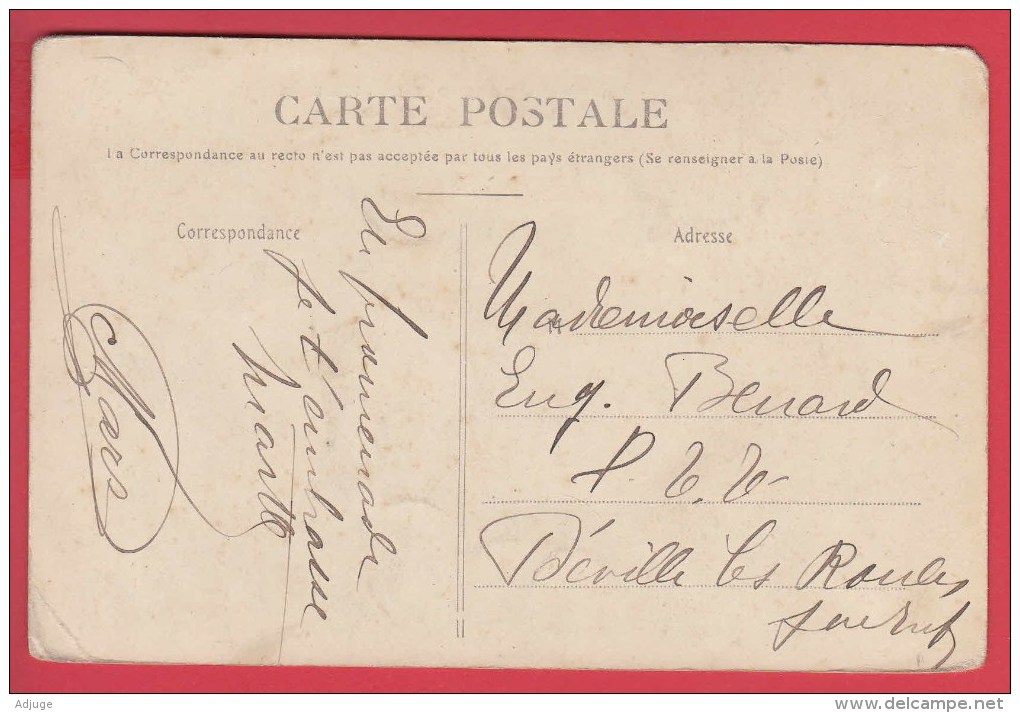 CARTE POSTALE
La Correspondance au recto n'est pas acceptée par tous les pays étrangers (Se renseigner a la Poste)
Correspondance
Adresse
En promenade
Je t'embrasse
Mars
Mademoiselle
Eug. Benard
P.T.T.
Déville les Rouen
Adjuge
delcampe.net